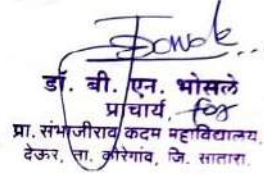 डॉ. बी. एन. भोसले
प्राचार्य for
प्रा. संभाजीराव कदम महाविद्यालय,
देऊर, ता. कोरेगांव, जि. सातारा.